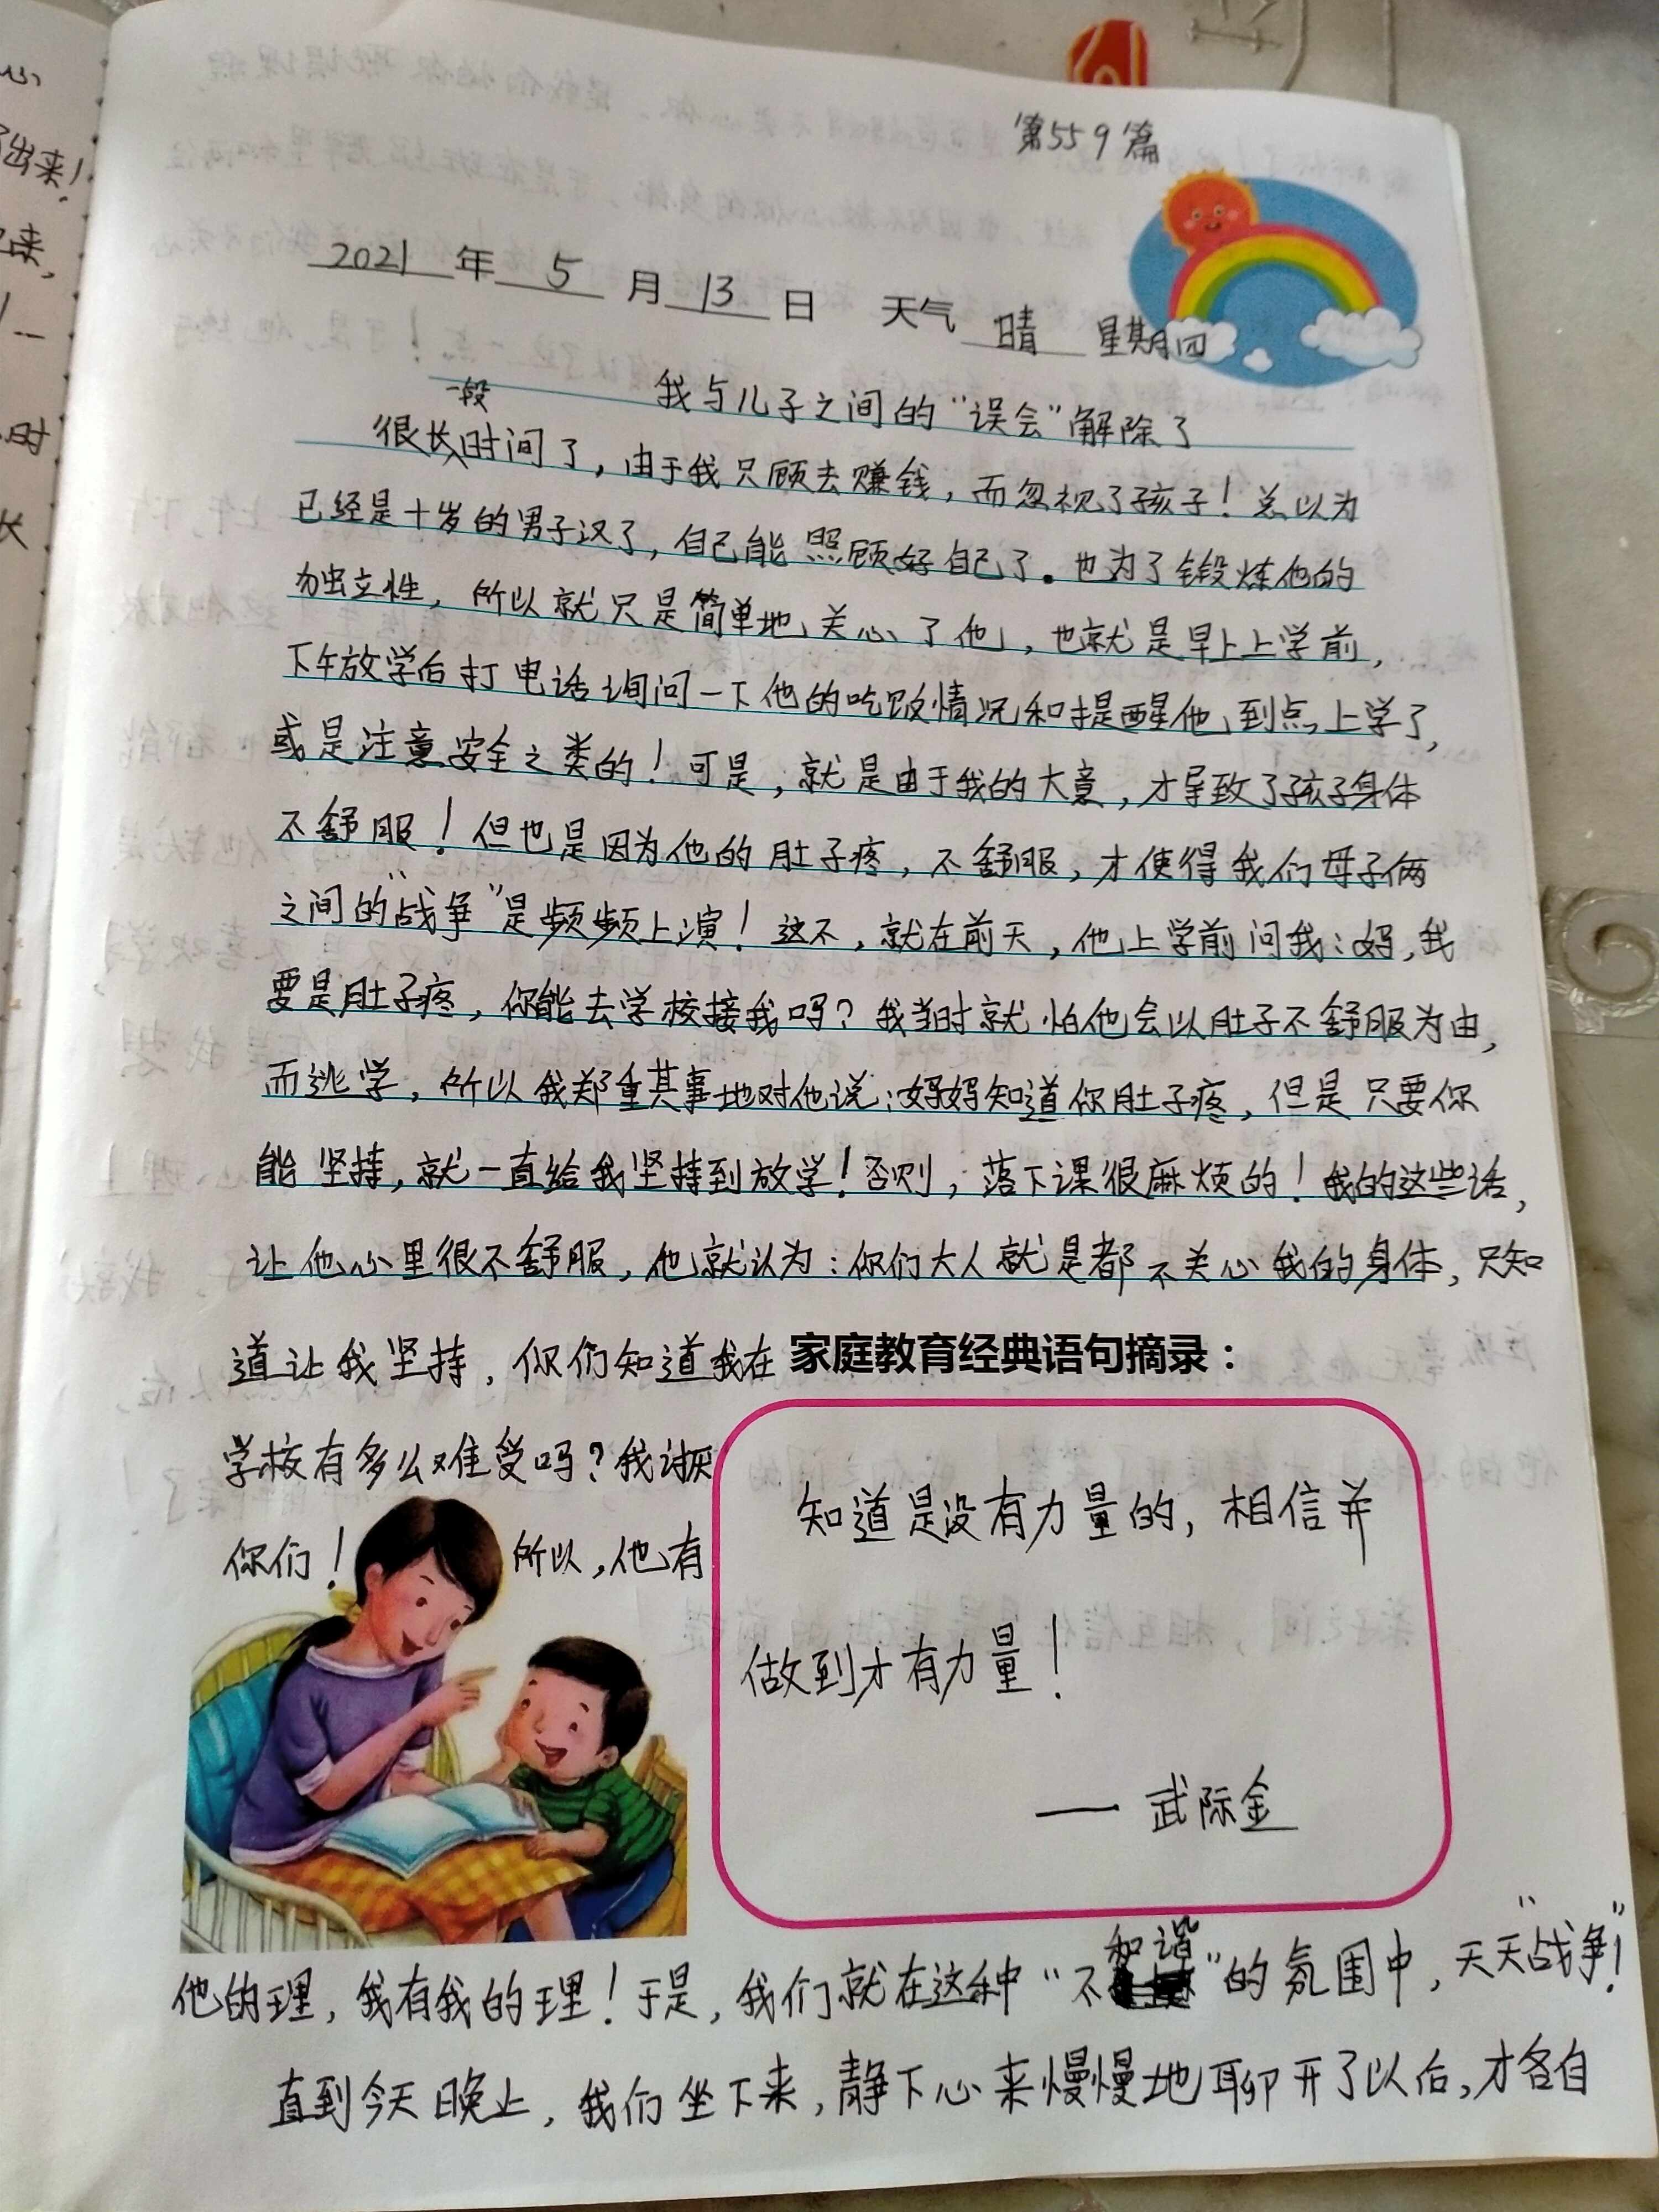 第559篇
2021年5月13日 天气 晴 星期四
我与儿子之间的“误会”解除了
很长一段时间了，由于我只顾去赚钱，而忽视了孩子！总以为
已经是十岁的男子汉了，自己能照顾好自己了。也为了锻炼他的
独立性，所以就只是简单地关心了他，也就是早上上学前，
下午放学后打电话询问一下他的吃饭情况和提醒他到点上学了，
或是注意安全之类的！可是，就是由于我的大意，才导致了孩子身体
不舒服！但也是因为他的肚子疼，不舒服，才使得我们母子俩
之间的“战争”是频频上演！这不，就在前天，他上学前问我：妈，我
要是肚子疼，你能去学校接我吗？我当时就怕他会以肚子不舒服为由，
而逃学，所以我郑重其事地对他说：妈妈知道你肚子疼，但是只要你
能坚持，就一直给我坚持到放学！否则，落下课很麻烦的！我的这些话，
让他心里很不舒服，他就认为：你们大人就是都不关心我的身体，只知
道让我坚持，你们知道我在
学校有多么难受吗？我讨厌
你们！所以，他有
家庭教育经典语句摘录：
知道是没有力量的，相信并
做到才有力量！
——武际金
他的理，我有我的理！于是，我们就在这种“不和谐”的氛围中，天天“战争”！
直到今天晚上，我们坐下来，静下心来慢慢地聊开了以后，才各自
出来！
来，
时
长